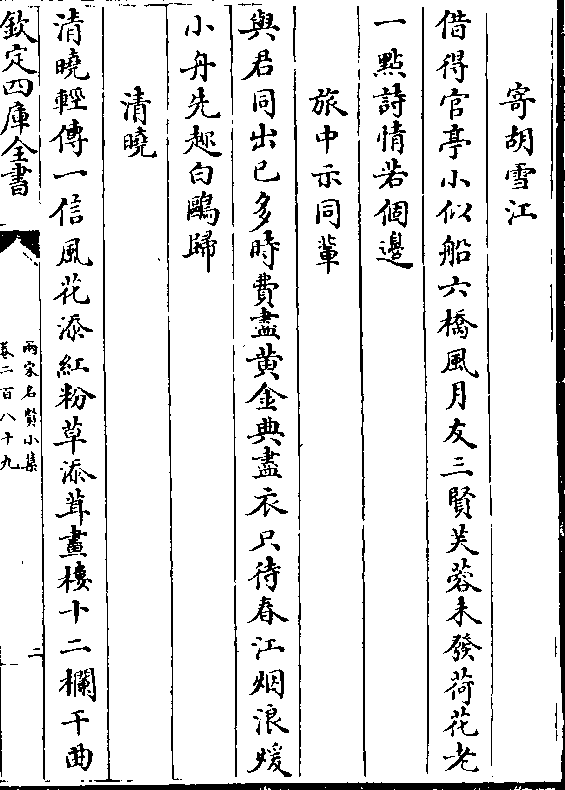 寄胡雪江
借得官亭小似船六橋風月友三賢芙蓉未發荷花老
一點詩情若個邊
旅中示同輩
與君同出已多時費盡黄金典盡衣只待春江烟浪煖
小舟先趂白鷗歸
清曉
清曉輕傳一信風花添紅粉草添茸畫樓十二欄干曲
欽定四庫全書
兩宋名賢小集
卷二百八十九
二